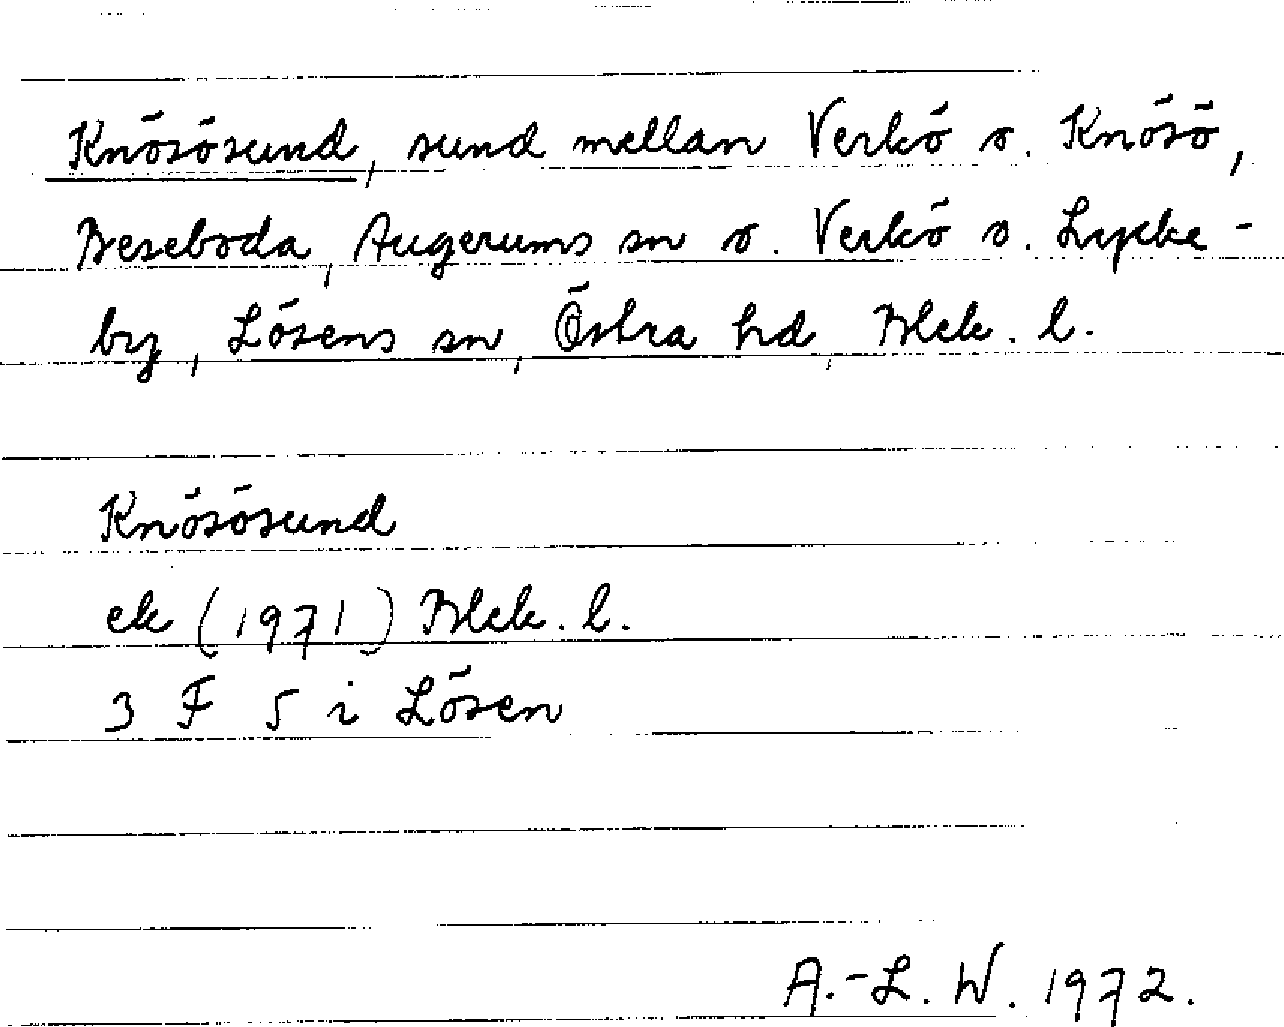 Knösösund, sund mellan Verkö o. Knösö,
Beseboda, Augerums sn o. Verkö o. Lycke-
by, Lösens sn, Östra hd, Blek. l.
Knösösund
ek (1971) Blek. l.
3 F 5 i Lösen
A.-L. W. 1972.